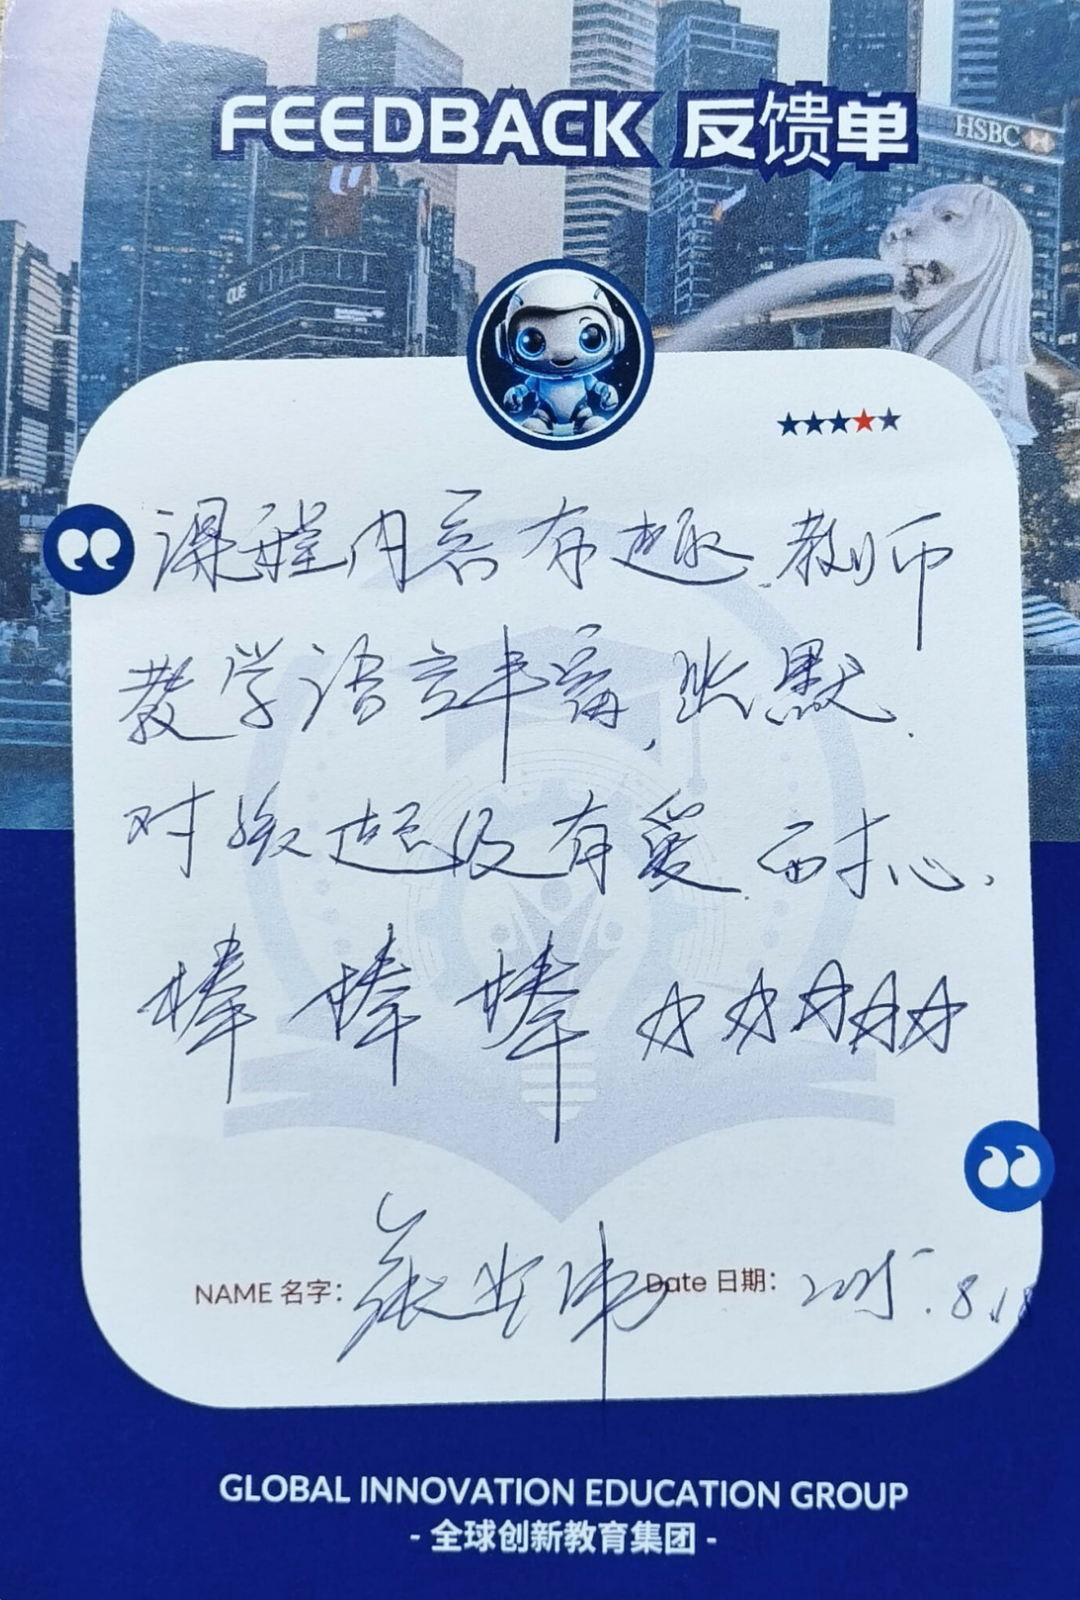 FEEDBACK 反馈单
HSBC
OUE
课程内容有趣、教师
教学语言丰富,幽默.
对孩超级有爱、耐心.
棒 棒 棒 ☆☆☆☆☆
NAME 名字: Date 日期: 2025.8.18
GLOBAL INNOVATION EDUCATION GROUP
- 全球创新教育集团 -